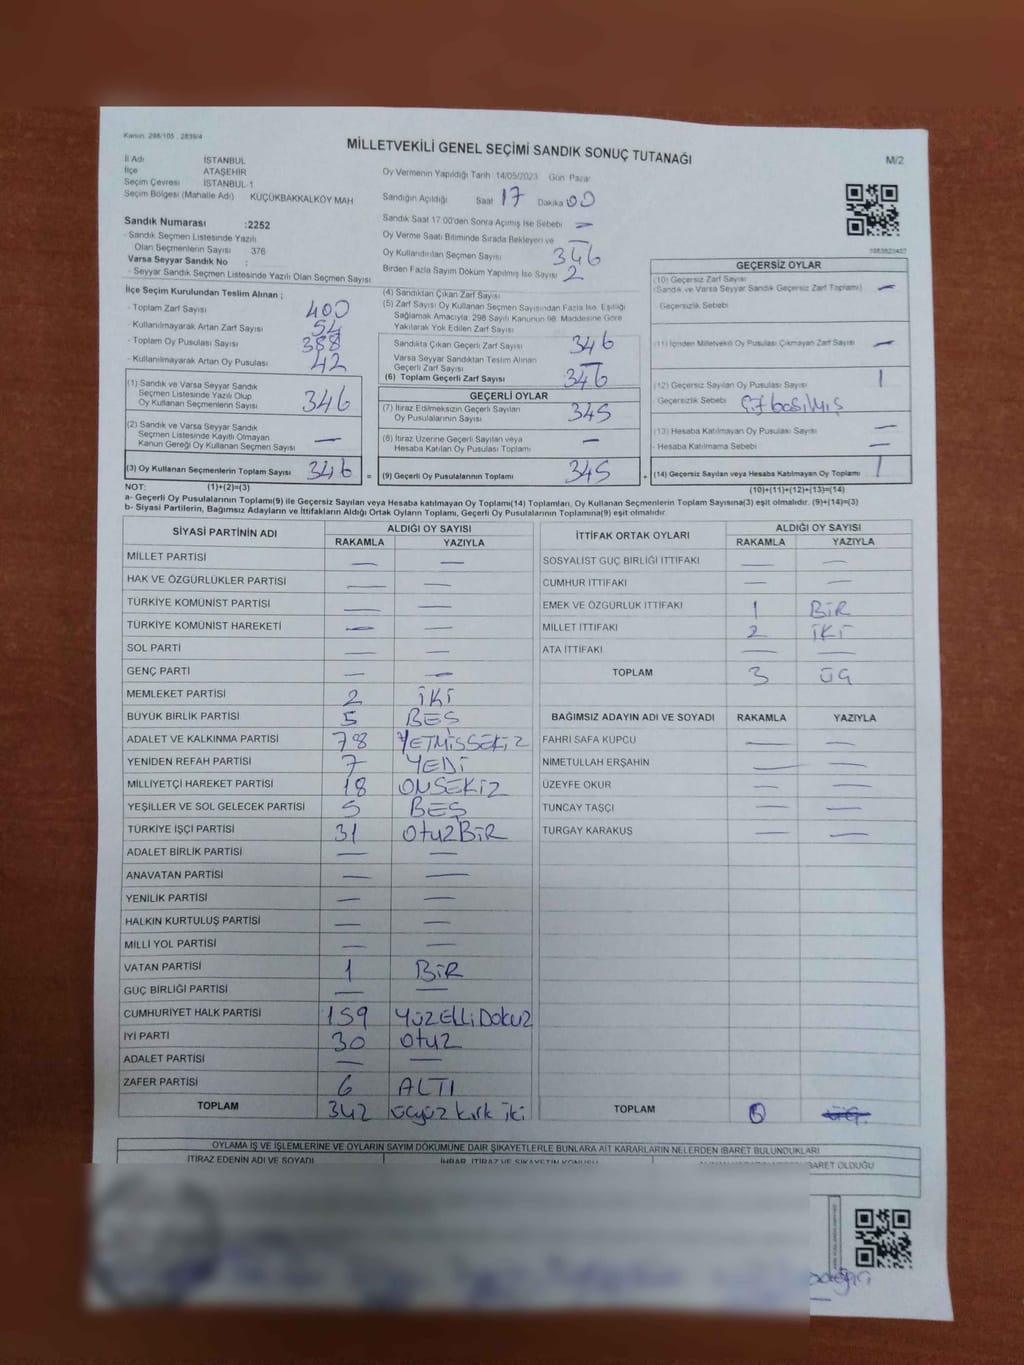 Kanun: 298/105 , 2839/4
MİLLETVEKİLİ GENEL SEÇİMİ SANDIK SONUÇ TUTANAĞI
M/2
İl Adı İSTANBUL
İlçe ATAŞEHİR
Seçim Çevresi İSTANBUL-1
Seçim Bölgesi (Mahalle Adı) KÜÇÜKBAKKALKÖY MAH
Oy Vermenin Yapıldığı Tarih 14/05/2023 Gün Pazar
Sandığın Açıldığı Saat 17 Dakika 00
Sandık Saat 17.00'den Sonra Açımış İse Sebebi —
Oy Verme Saati Bitiminde Sırada Bekleyen ve —
Oy Kullandırılan Seçmen Sayısı 346
Birden Fazla Sayım Döküm Yapılmış İse Sayısı 2
Sandık Numarası :2252
- Sandık Seçmen Listesinde Yazılı
Olan Seçmenlerin Sayısı : 376
Varsa Seyyar Sandık No :
- Seyyar Sandık Seçmen Listesinde Yazılı Olan Seçmen Sayısı:
İlçe Seçim Kurulundan Teslim Alınan ;
- Toplam Zarf Sayısı 400
- Kullanılmayarak Artan Zarf Sayısı 54
- Toplam Oy Pusulası Sayısı 388
- Kullanılmayarak Artan Oy Pusulası 42
(1) Sandık ve Varsa Seyyar Sandık
Seçmen Listesinde Yazılı Olup
Oy Kullanan Seçmenlerin Sayısı 346
(2) Sandık ve Varsa Seyyar Sandık
Seçmen Listesinde Kayıtlı Olmayan
Kanun Gereği Oy Kullanan Seçmen Sayısı —
(3) Oy Kullanan Seçmenlerin Toplam Sayısı 346 =
(4) Sandıktan Çıkan Zarf Sayısı
(5) Zarf Sayısı Oy Kullanan Seçmen Sayısından Fazla İse, Eşitliği
Sağlamak Amacıyla; 298 Sayılı Kanunun 98. Maddesine Göre
Yakılarak Yok Edilen Zarf Sayısı
Sandıkta Çıkan Geçerli Zarf Sayısı 346
Varsa Seyyar Sandıktan Teslim Alınan
Geçerli Zarf Sayısı —
(6) Toplam Geçerli Zarf Sayısı 346
GEÇERLİ OYLAR
(7) İtiraz Edilmeksizin Geçerli Sayılan
Oy Pusulalarının Sayısı 345
(8) İtiraz Üzerine Geçerli Sayılan veya
Hesaba Katılan Oy Pusulası Toplamı —
(9) Geçerli Oy Pusulalarının Toplamı 345 +
GEÇERSİZ OYLAR
(10) Geçersiz Zarf Sayısı
(Sandık ve Varsa Seyyar Sandık Geçersiz Zarf Toplamı) —
Geçersizlik Sebebi
(11) İçinden Milletvekili Oy Pusulası Çıkmayan Zarf Sayısı —
(12) Geçersiz Sayılan Oy Pusulası Sayısı 1
Geçersizlik Sebebi basılmış
(13) Hesaba Katılmayan Oy Pusulası Sayısı —
- Hesaba Katılmama Sebebi —
(14) Geçersiz Sayılan veya Hesaba Katılmayan Oy Toplamı 1
NOT: (1)+(2)=(3)
(10)+(11)+(12)+(13)=(14)
a- Geçerli Oy Pusulalarının Toplamı(9) ile Geçersiz Sayılan veya Hesaba katılmayan Oy Toplamı(14) Toplamları, Oy Kullanan Seçmenlerin Toplam Sayısına(3) eşit olmalıdır. (9)+(14)=(3)
b- Siyasi Partilerin, Bağımsız Adayların ve İttifakların Aldığı Ortak Oyların Toplamı, Geçerli Oy Pusulalarının Toplamına(9) eşit olmalıdır.
SİYASİ PARTİNİN ADI ALDIĞI OY SAYISI
RAKAMLA YAZIYLA
MİLLET PARTİSİ — —
HAK VE ÖZGÜRLÜKLER PARTİSİ — —
TÜRKİYE KOMÜNİST PARTİSİ — —
TÜRKİYE KOMÜNİST HAREKETİ — —
SOL PARTİ — —
GENÇ PARTİ — —
MEMLEKET PARTİSİ 2 İKİ
BÜYÜK BİRLİK PARTİSİ 5 BEŞ
ADALET VE KALKINMA PARTİSİ 78 YETMİŞSEKİZ
YENİDEN REFAH PARTİSİ 7 YEDİ
MİLLİYETÇİ HAREKET PARTİSİ 18 ONSEKİZ
YEŞİLLER VE SOL GELECEK PARTİSİ 5 BEŞ
TÜRKİYE İŞÇİ PARTİSİ 31 OtuzBİR
ADALET BİRLİK PARTİSİ — —
ANAVATAN PARTİSİ — —
YENİLİK PARTİSİ — —
HALKIN KURTULUŞ PARTİSİ — —
MİLLİ YOL PARTİSİ — —
VATAN PARTİSİ 1 BİR
GÜÇ BİRLİĞİ PARTİSİ — —
CUMHURİYET HALK PARTİSİ 159 YÜZELLİDOKUZ
İYİ PARTİ 30 Otuz
ADALET PARTİSİ — —
ZAFER PARTİSİ 6 ALTI
TOPLAM 342 Üçyüz kırk iki
İTTİFAK ORTAK OYLARI ALDIĞI OY SAYISI
RAKAMLA YAZIYLA
SOSYALİST GÜÇ BİRLİĞİ İTTİFAKI — —
CUMHUR İTTİFAKI — —
EMEK VE ÖZGÜRLÜK İTTİFAKI 1 BİR
MİLLET İTTİFAKI 2 İKİ
ATA İTTİFAKI — —
TOPLAM 3 ÜÇ
BAĞIMSIZ ADAYIN ADI VE SOYADI RAKAMLA YAZIYLA
FAHRİ SAFA KÜPCÜ — —
NİMETULLAH ERŞAHİN — —
ÜZEYFE OKUR — —
TUNCAY TAŞÇI — —
TURGAY KARAKUŞ — —
TOPLAM
OYLAMA İŞ VE İŞLEMLERİNE VE OYLARIN SAYIM DÖKÜMÜNE DAİR ŞİKAYETLERLE BUNLARA AİT KARARLARIN NELERDEN İBARET BULUNDUKLARI
İTİRAZ EDENİN ADI VE SOYADI
İHBAR, İTİRAZ VE ŞİKAYETİN KONUSU
BARET OLDUĞU